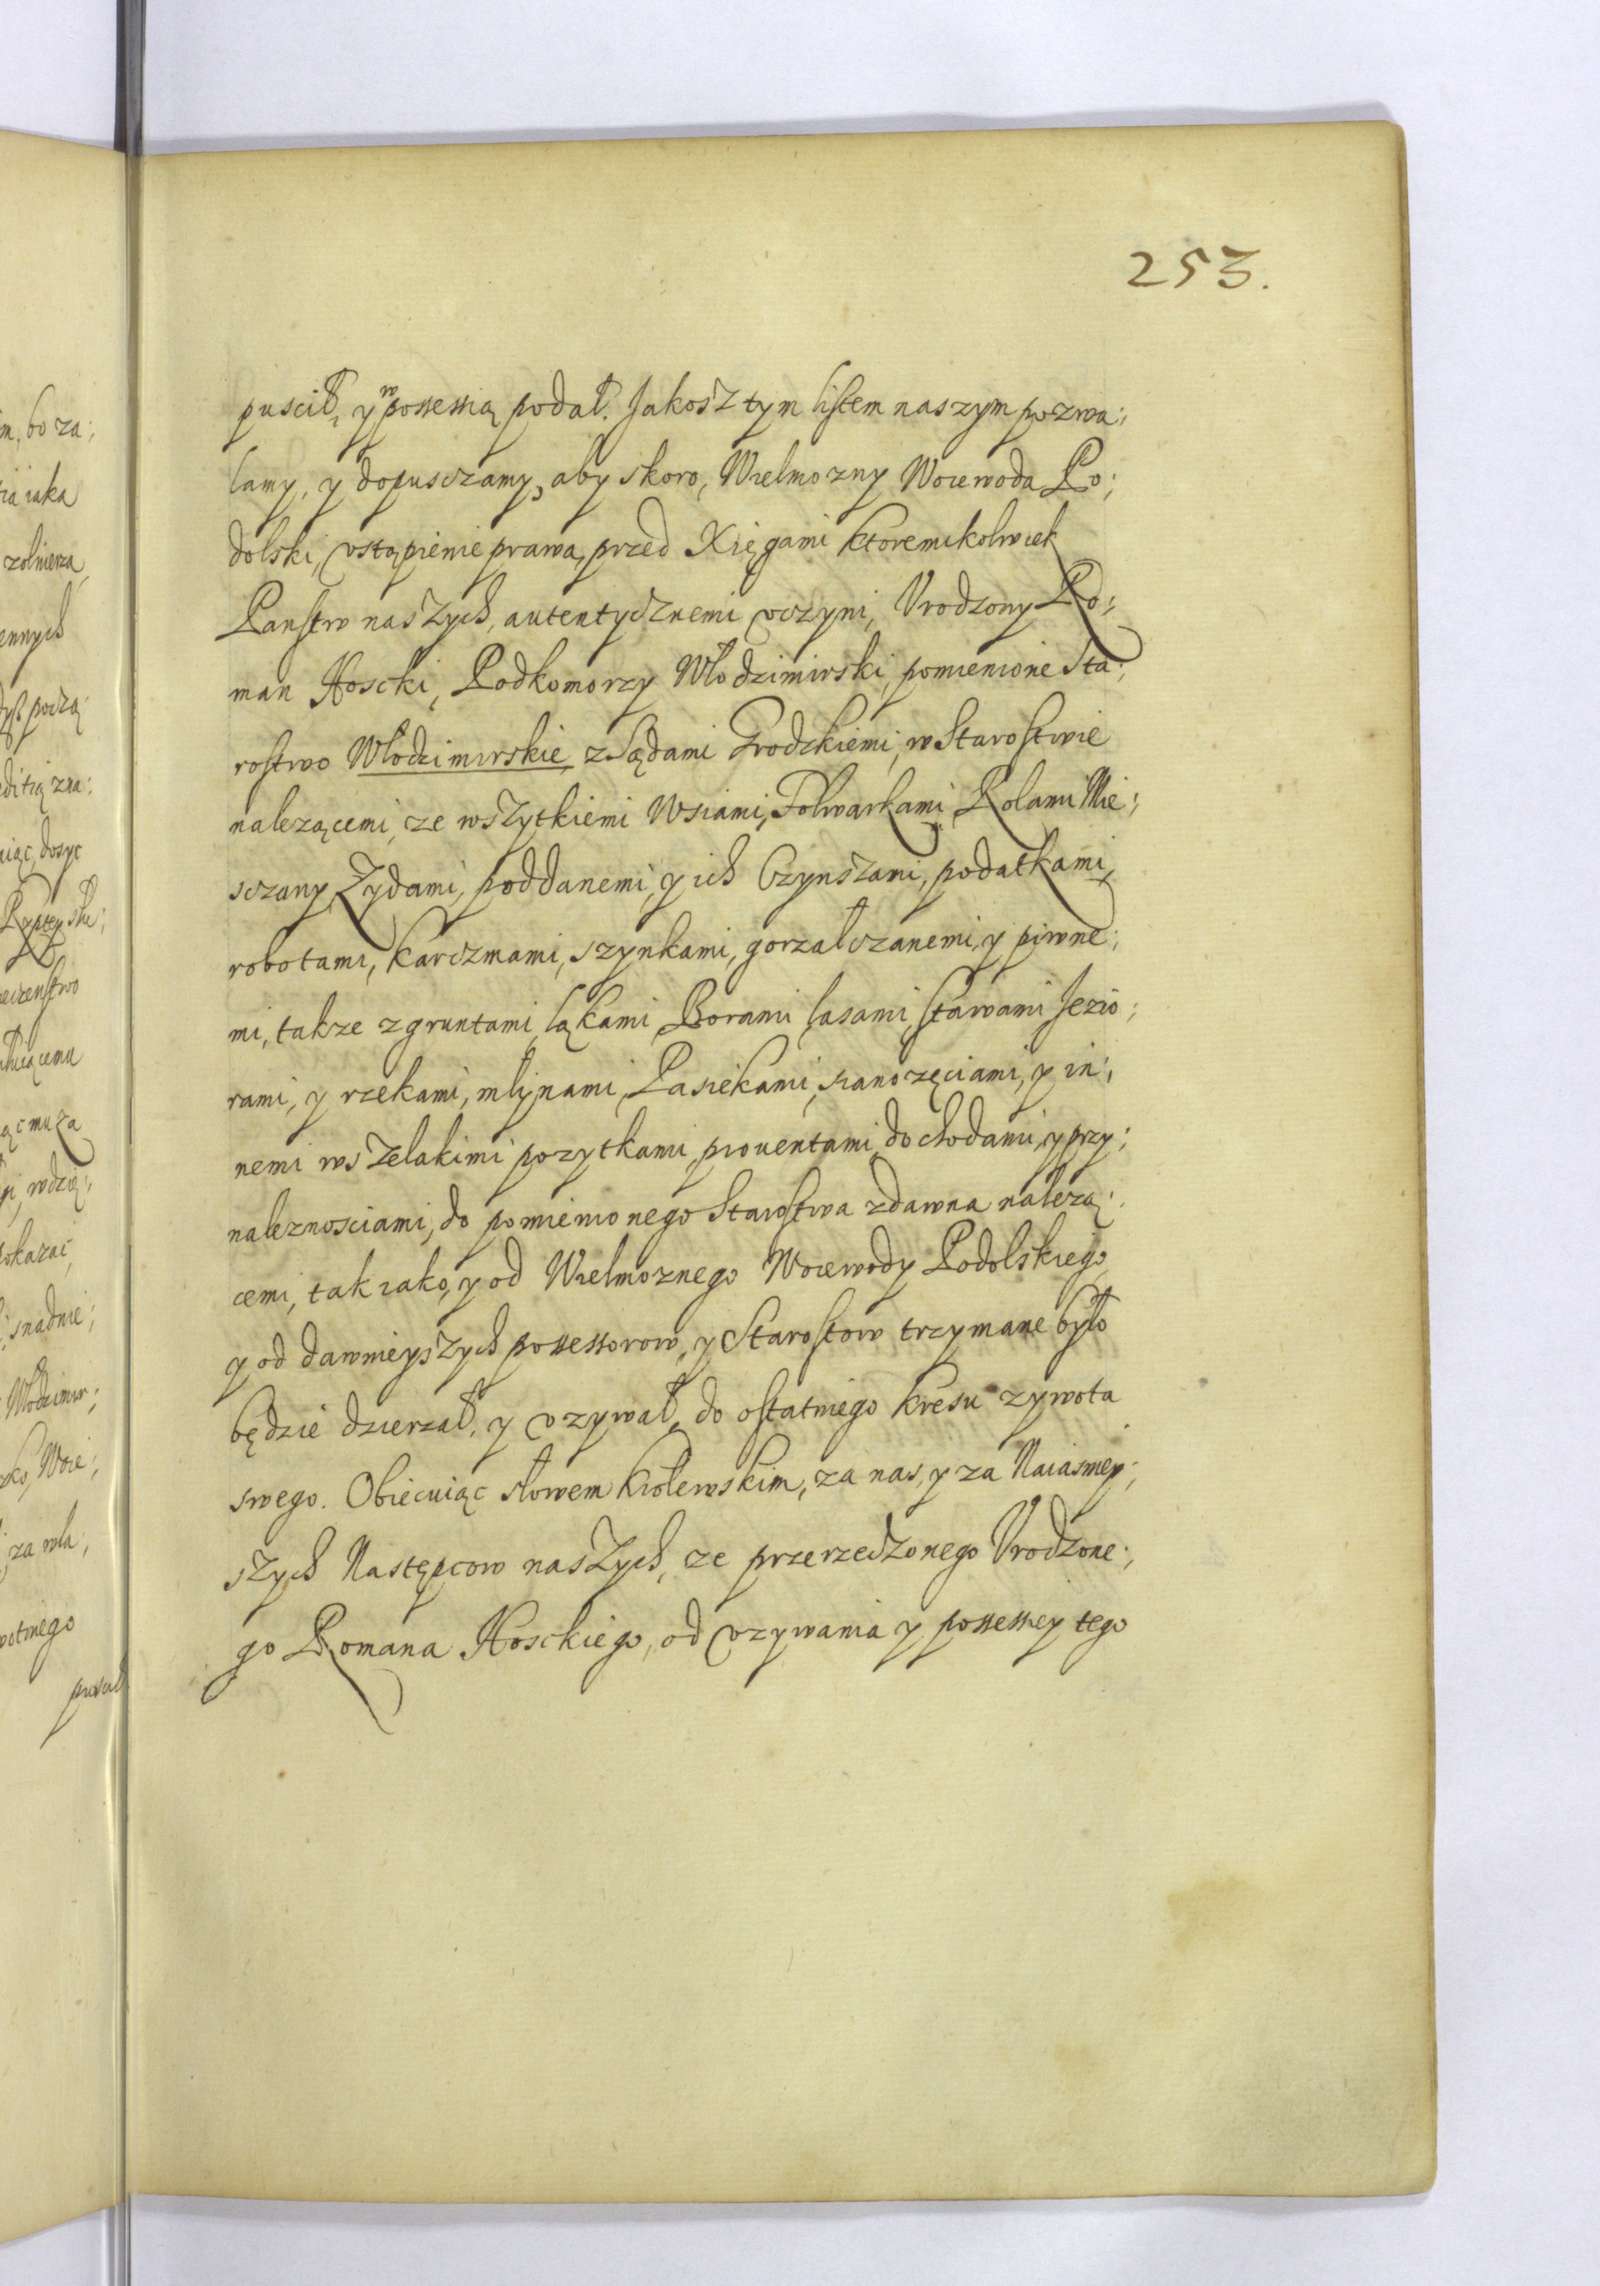 253.
puscił, y w possessią podał. Jakosz tym listem naszym pozwa:
lamy, y dopusczamy, aby skoro, Wielmozny Woiewoda Po:
dolski, vstąpienie prawa, przed Xięgami ktoremikolwiek
Panstw naszych, autentycznemi vczyni, Vrodzony Ro:
man Hoscki, Podkomorzy Włodzimirski, pomienione Sta:
rostwo Włodzimirskie, z Sądami Grodzkiemi, w Starostwie
nalezącemi, ze wszytkiemi Wsiami, Folwarkami, Rolami Mie:
sczany, Zydami, poddanemi, y ich Czynszami, podatkami,
robotami, karczmami, szynkami, gorzałczanemi, y piwne:
mi, takze z gruntami, łąkami, Borami, lasami, stawami Jezio:
rami, y rzekami, młynami, Pasiekami, sianozęciami, y in:
nemi wszelakimi pozytkami, prouentami, dochodami, y przy:
naleznosciami, do pomienionego Starostwa zdawna nalezą:
cemi, tak iako, y od Wielmoznego Woiewody Podolskiego,
y od dawnieyszych possessorow, y Starostow trzymane było
będzie dzierzał, y vzywał, do ostatniego kresu zywota
swego. Obiecuiąc słowem krolewskim, za nas, y za Naiasniey:
szych Następcow naszych, ze przerzeczonego Vrodzone:
go Romana Hosckiego, od vzywania y possessiey tego
m, bo za:
iaka
zolnierza
ennych
począ:
ditią zna:
iąc, dosyc
mu za
okazać,
snadnie;
Włodzimir:
Woie:
za wła,
wotniego
puscił